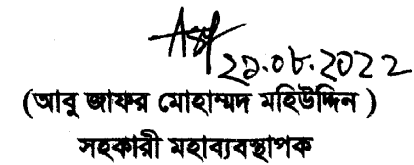 ২৯.০৮.2022
(আবু জাফর মোহাম্মদ মহিউদ্দিন )
সহকারী মহাব্যবস্থাপক